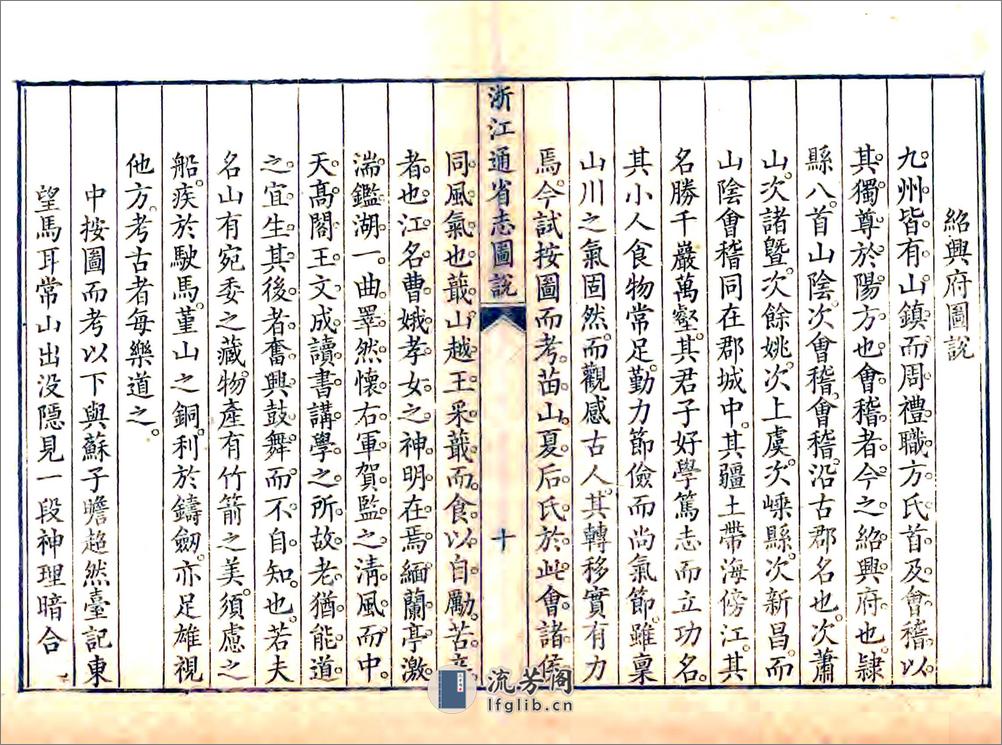 紹興府圖說
九州皆有山鎮而周禮職方氏首及會稽以
其獨尊於陽方也會稽者今之紹興府也隸
縣八首山陰次會稽會稽沿古郡名也次蕭
山次諸暨次餘姚次上虞次嵊縣次新昌而
山陰會稽同在郡城中其疆土帶海傍江其
名勝千巖萬壑其君子好學篤志而立功名
其小人食物常足勤力節儉而尚氣節雖稟
山川之氣固然而觀感古人其轉移實有力
焉今試按圖而考苗山夏后氏於此會諸侯
浙江通省志圖說
十
同風氣也蕺山越王采蕺而食以自勵苦
者也江名曹娥孝女之神明在焉緬蘭亭激
湍鑑湖一曲睪然懷右軍賀監之清風而中
天高閣王文成讀書講學之所故老猶能道
之宜生其後者奮興鼓舞而不自知也若夫
名山有宛委之藏物產有竹箭之美須慮之
船疾於駛馬堇山之銅利於鑄劒亦足雄視
他方考古者每樂道之
中按圖而考以下與蘇子瞻超然臺記東
望馬耳常山出没隱見一段神理暗合
流芳阁
lfglib.cn